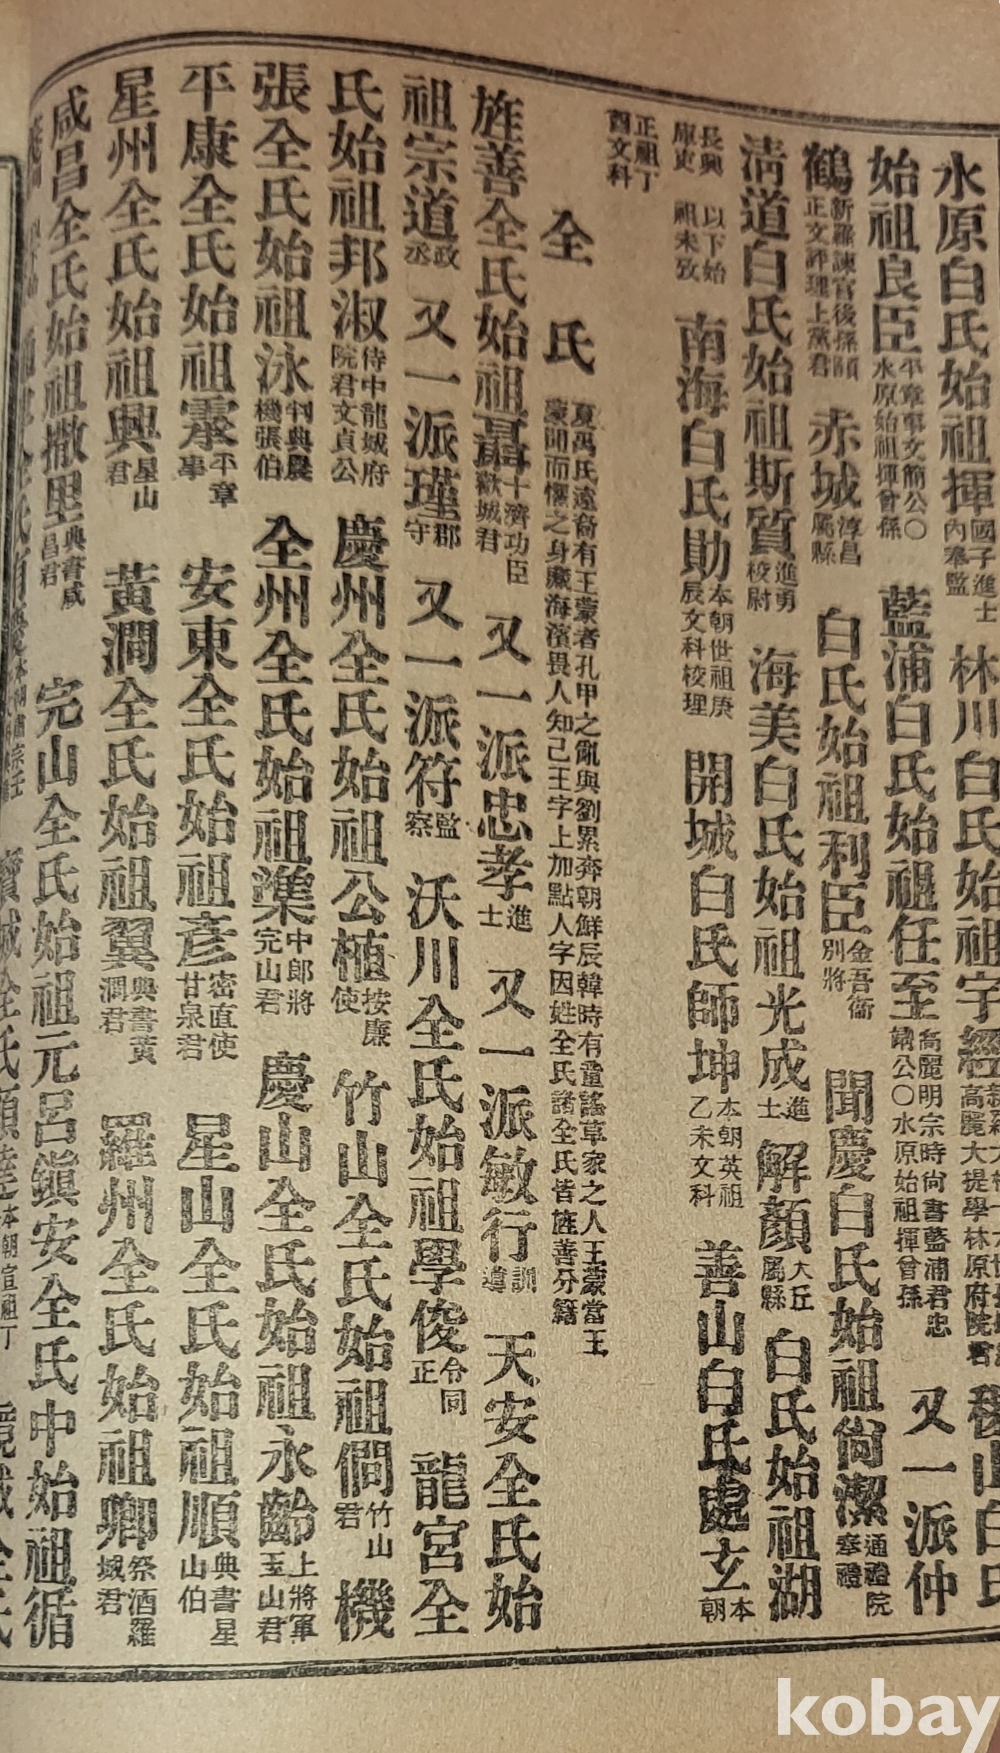 水原白氏始祖揮國子進士內奉監 林川白氏始祖宇經 高麗大提學林原府院君 稷山白氏
始祖良臣平章事文簡公〇水原始祖揮曾孫 藍浦白氏始祖任至高麗明宗時尙書藍浦君忠肅公〇水原始祖揮曾孫 又一派仲
鶴新羅諫官後孫頤正文評理上黨君 赤城淳昌屬縣 白氏始祖利臣金吾衛別將 聞慶白氏始祖尙潔通禮院奉禮
淸道白氏始祖斯質進勇校尉 海美白氏始祖光成進士 解顏大丘屬縣 白氏始祖湖
長興庫吏 以下始祖未攷 南海白氏勛本朝世祖庚辰文科校理 開城白氏師坤本朝英祖乙未文科 善山白氏處玄本朝
正祖丁酉文科
全 氏 夏禹氏遠裔有王蒙者孔甲之亂與劉累奔朝鮮辰韓時有童謠草家之人王蒙當王蒙聞而懼之身廢海濱畏人知己王字上加點人字因姓全氏諸全氏皆旌善分籍
旌善全氏始祖聶十濟功臣歡城君 又一派忠孝進士 又一派敏行訓導 天安全氏始
祖宗道政丞 又一派瑾郡守 又一派符監察 沃川全氏始祖學俊令同正 龍宮全
氏始祖邦淑侍中龍城府院君文貞公 慶州全氏始祖公植按廉使 竹山全氏始祖僩竹山君 機
張全氏始祖泳判典農機張伯 全州全氏始祖潗中郞將完山君 慶山全氏始祖永齡上將軍玉山君
平康全氏始祖 平章事 安東全氏始祖彥密直使甘泉君 星山全氏始祖順典書星山伯
星州全氏始祖興星山君 黃澗全氏始祖翼典書黃澗君 羅州全氏始祖卿祭酒羅城君
咸昌全氏始祖撒里典書咸昌君 完山全氏始祖元呂鎭安全氏中始祖循